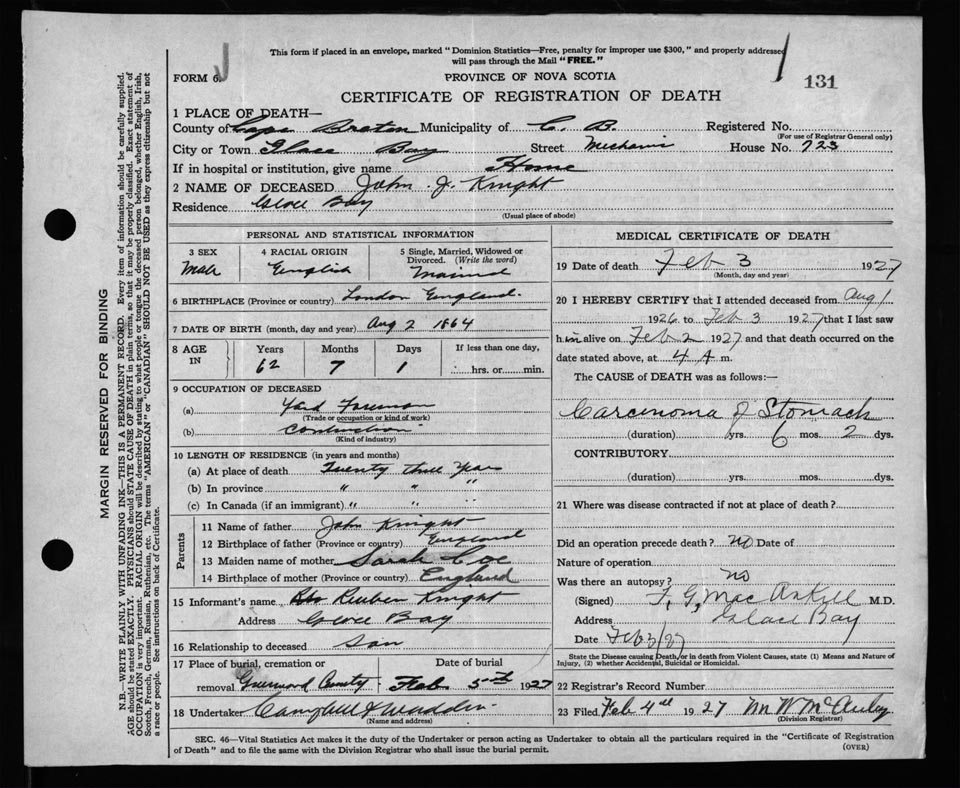 This form if placed in an envelope, marked "Dominion Statistics—Free, penalty for improper use $300," and properly addressed
will pass through the Mail "FREE."
FORM 6.
PROVINCE OF NOVA SCOTIA
131
CERTIFICATE OF REGISTRATION OF DEATH
1 PLACE OF DEATH—
County of Cape Breton Municipality of C. B. Registered No.
(For use of Registrar General only)
City or Town Glace Bay Street House No. 723
If in hospital or institution, give name Home
2 NAME OF DECEASED John J. Knight
Residence Glace Bay
(Usual place of abode)
PERSONAL AND STATISTICAL INFORMATION
3 SEX 4 RACIAL ORIGIN 5 Single, Married, Widowed or Divorced. (Write the word)
Male English Married
6 BIRTHPLACE (Province or country) London England.
7 DATE OF BIRTH (month, day and year) Aug 2 1864
8 AGE IN Years Months Days If less than one day,
62 7 1 hrs. or min.
9 OCCUPATION OF DECEASED
(a) Yard Foreman
(Trade or occupation or kind of work)
(b)
(Kind of industry)
10 LENGTH OF RESIDENCE (in years and months)
(a) At place of death Twenty three Years
(b) In province " " "
(c) In Canada (if an immigrant) " "
Parents
11 Name of father John Knight
12 Birthplace of father (Province or country) England
13 Maiden name of mother Sarah Coe
14 Birthplace of mother (Province or country) England
15 Informant's name Reuben Knight
Address Glace Bay
16 Relationship to deceased Son
17 Place of burial, cremation or Date of burial
removal Greenwood Feb 5th 1927
18 Undertaker Campbell & Wadden
(Name and address)
MEDICAL CERTIFICATE OF DEATH
19 Date of death Feb 3 1927
(Month, day and year)
20 I HEREBY CERTIFY that I attended deceased from Aug 1
1926 to Feb 3 1927 that I last saw
h im alive on Feb 2 1927 and that death occurred on the
date stated above, at 4 A m.
The CAUSE of DEATH was as follows:—
Carcinoma of Stomach
(duration) yrs. 6 mos. 2 dys.
CONTRIBUTORY
(duration) yrs. mos. dys.
21 Where was disease contracted if not at place of death?
Did an operation precede death? no Date of
Nature of operation
Was there an autopsy? no
(Signed) F. G. MacAskill M.D.
Address Glace Bay
Date Feb 3/27
State the Disease causing Death, or in death from Violent Causes, state (1) Means and Nature of
Injury, (2) whether Accidental, Suicidal or Homicidal.
22 Registrar's Record Number
23 Filed Feb 4th 1927
(Division Registrar)
SEC. 46—Vital Statistics Act makes it the duty of the Undertaker or person acting as Undertaker to obtain all the particulars required in the "Certificate of Registration
of Death" and to file the same with the Division Registrar who shall issue the burial permit.
(OVER)
MARGIN RESERVED FOR BINDING
N.B.—WRITE PLAINLY WITH UNFADING INK—THIS IS A PERMANENT RECORD. Every item of information should be carefully supplied.
AGE should be stated EXACTLY. PHYSICIANS should STATE CAUSE OF DEATH in plain terms, so that it may be properly classified. Exact statement of
OCCUPATION is very important. RACIAL ORIGIN will be described by stating to what people or tongue the deceased person belonged, whether English, Irish,
Scotch, French, German, Russian, Ruthenian, etc. The terms "AMERICAN" or "CANADIAN" SHOULD NOT BE USED as they express citizenship but not
a race or people. See instructions on back of Certificate.